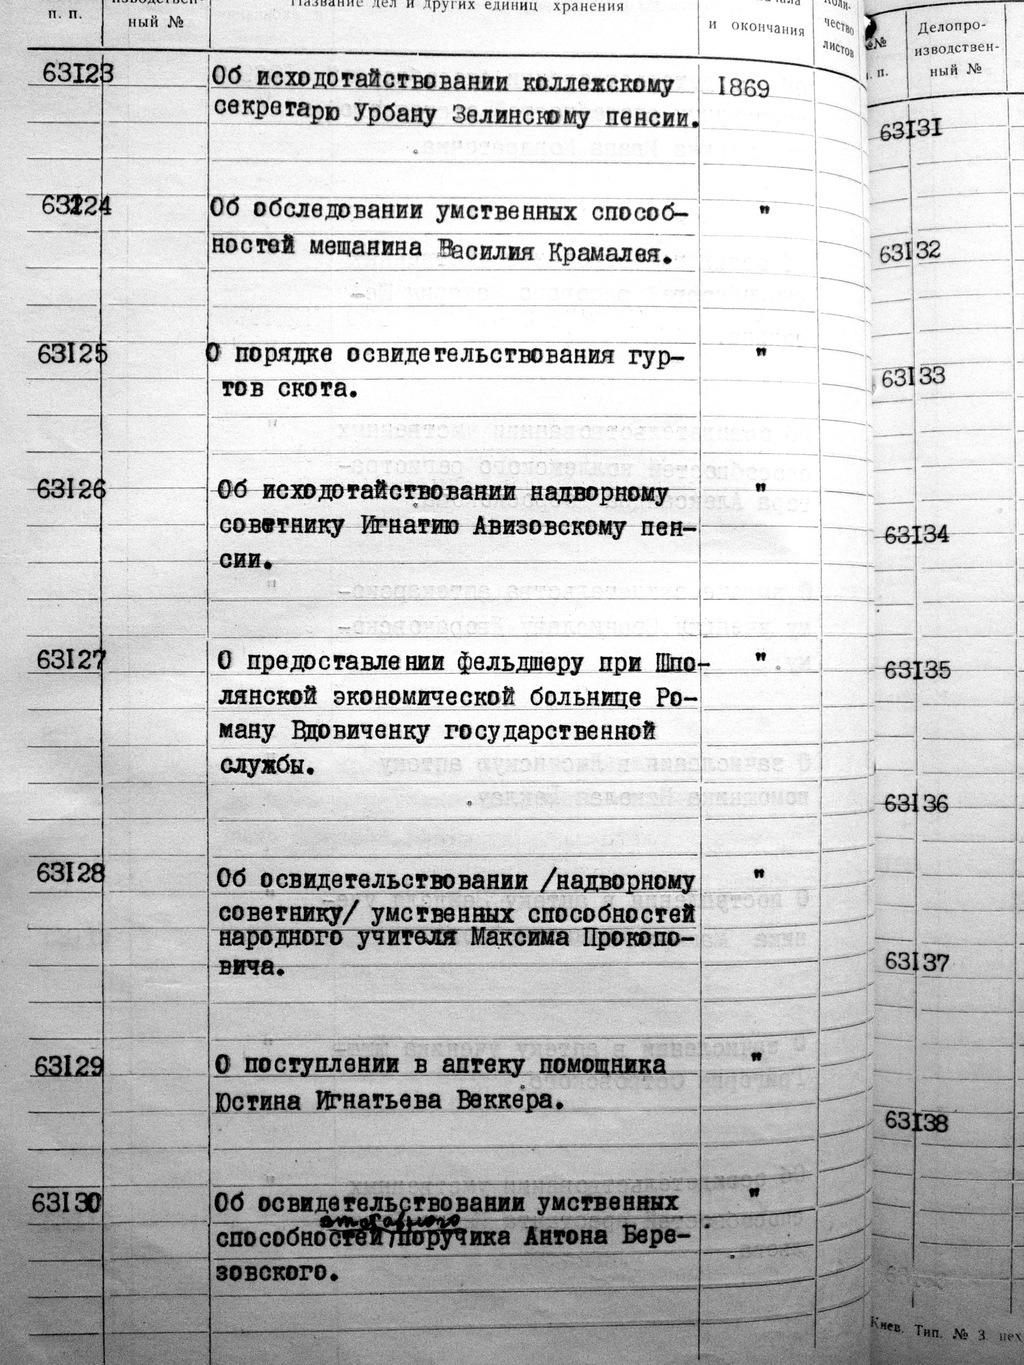 п. п.
ный №
Название дел и других единиц хранения
и окончания
чество
листов
63123 Об исходотайствовании коллежскому 1869
секретарю Урбану Зелинскому пенсии.
63124 Об обследовании умственных способ- "
ностей мещанина Василия Крамалея.
63125 О порядке освидетельствования гур- "
тов скота.
63126 Об исходотайствовании надворному "
советнику Игнатию Авизовскому пен-
сии.
63127 О предоставлении фельдшеру при Шпо- "
лянской экономической больнице Ро-
ману Вдовиченку государственной
службы.
63128 Об освидетельствовании /надворному "
советнику/ умственных способностей
народного учителя Максима Прокопо-
вича.
63129 О поступлении в аптеку помощника "
Юстина Игнатьева Веккера.
63130 Об освидетельствовании умственных "
отставного
способностей/поручика Антона Бере-
зовского.
№№
п.
Делопро-
изводствен-
ный №
63131
63132
63133
63134
63135
63136
63137
63138
Киев. Тип. № 3 цех